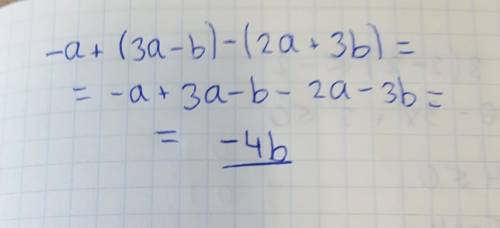 -a + (3a-b)-(2a+3b) =
= -a + 3a-b - 2a-3b =
= -4b